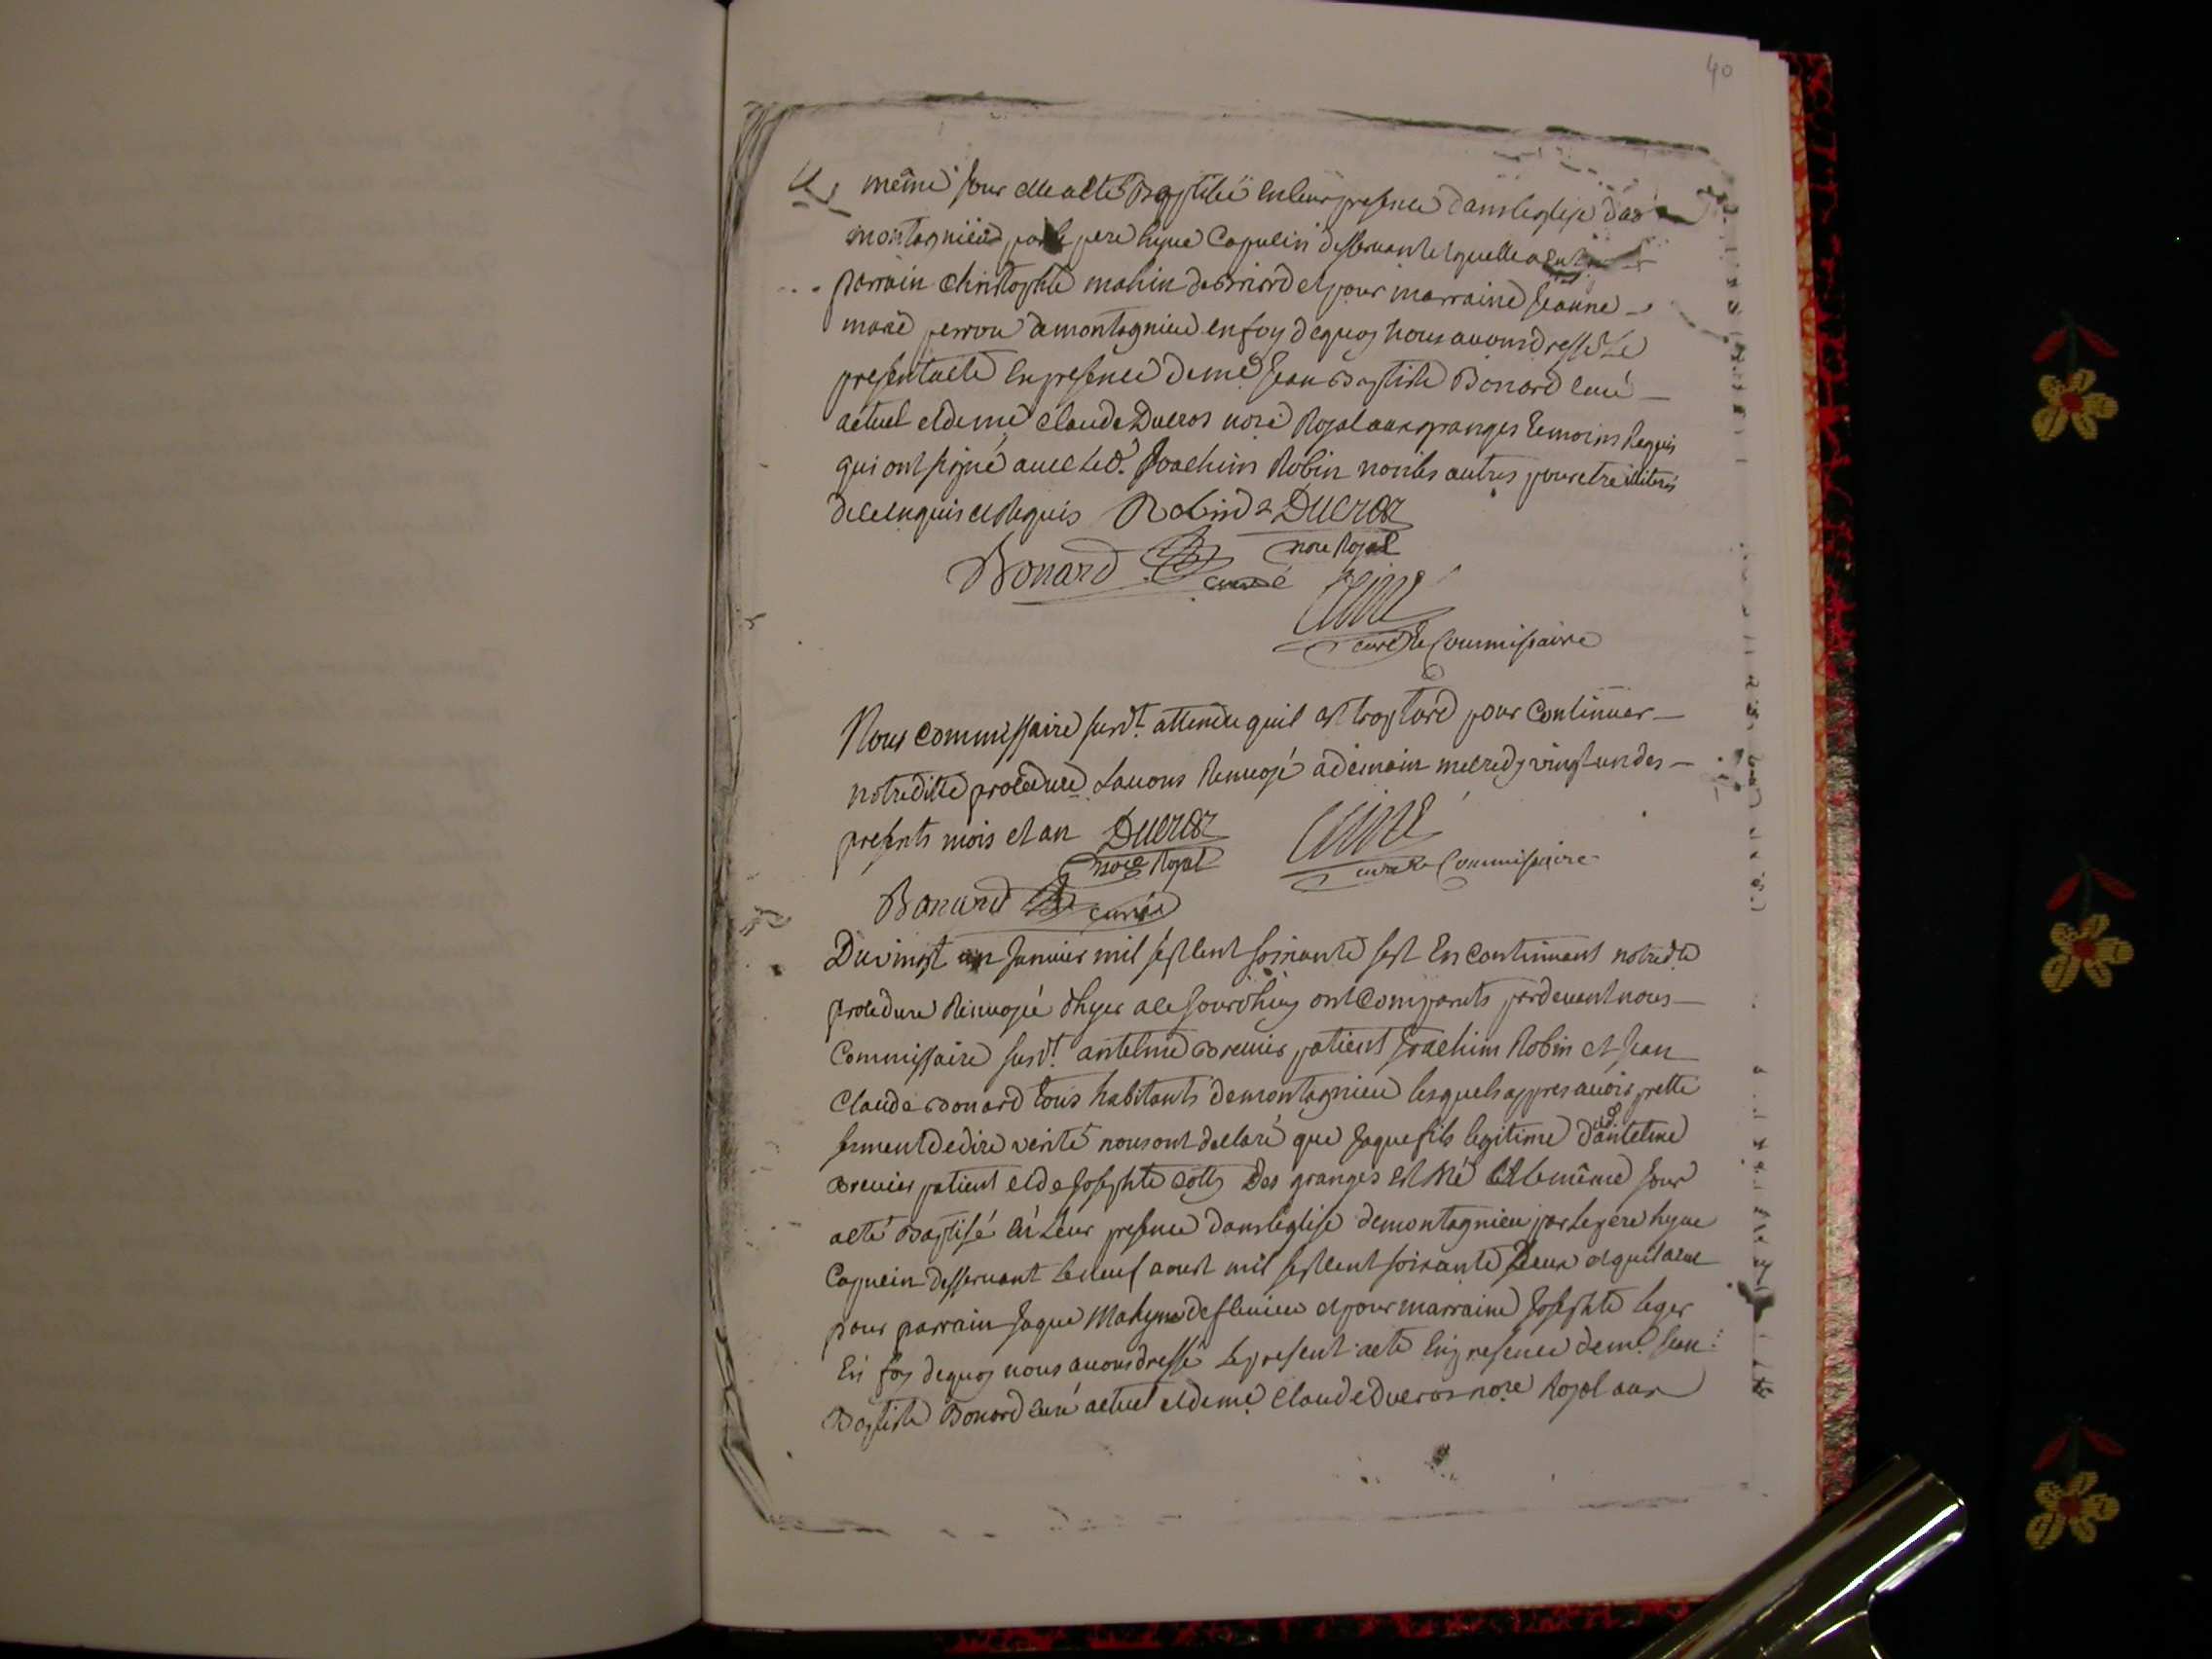 40
même jour elle a eté Baptisée en leur presence dans leglise
montagnieu par le pere hyue Capucin desservant laquelle a eu
parrain Christophle mahin de Briord et pour marraine Jeanne
marie perrou de montagnieu en foy dequoy nous avons dressé Le
present acte en presence de me Jean Baptiste Bonard curé
actuel et de me Claude Ducros nore Royal aux granges temoins Requis
qui ont signé avec led. Joachim Robin non les autres pour etre illiterés
de ce enquis et Requis Robin Ducros
nore Royal
Bonard curé
curé Commissaire
Nous Commissaire susdt. attendu quil est trop tard pour Continuer
notreditte procedure Lavons Renvoyé a demain mecredy vingt un des
presents mois et an Ducros
nore Royal
curé Commissaire
Bonard curé
Du vingt un Janvier mil sept cent soixante sept En Continuant notredte
procedure Renvoyée dhyer a ce Jourdhuy ont Comparuts pardevant nous
Commissaire susdt. antelme Brevier patient Joachim Robin et Jean
Claude Bonard tous habitants de montagnieu lesquels appres avoir pretté
serment de dire verité nous ont declaré que Jaque fils legitime dantelme
Brevier patient et de Josephte Des granges est Né et le même Jour
a eté Baptisé en Leur presence dans leglise de montagnieu par le pere hyue
Capucin desservant le neuf aoust mil sept cent soixante deux et quil a eu
pour parrain Jaque de flevieu et pour marraine Josephte leger
En foy dequoy nous avons dressé le present acte en presence de me Jean
Baptiste Bonard curé actuel et de me Claude Ducros nore Royal aux